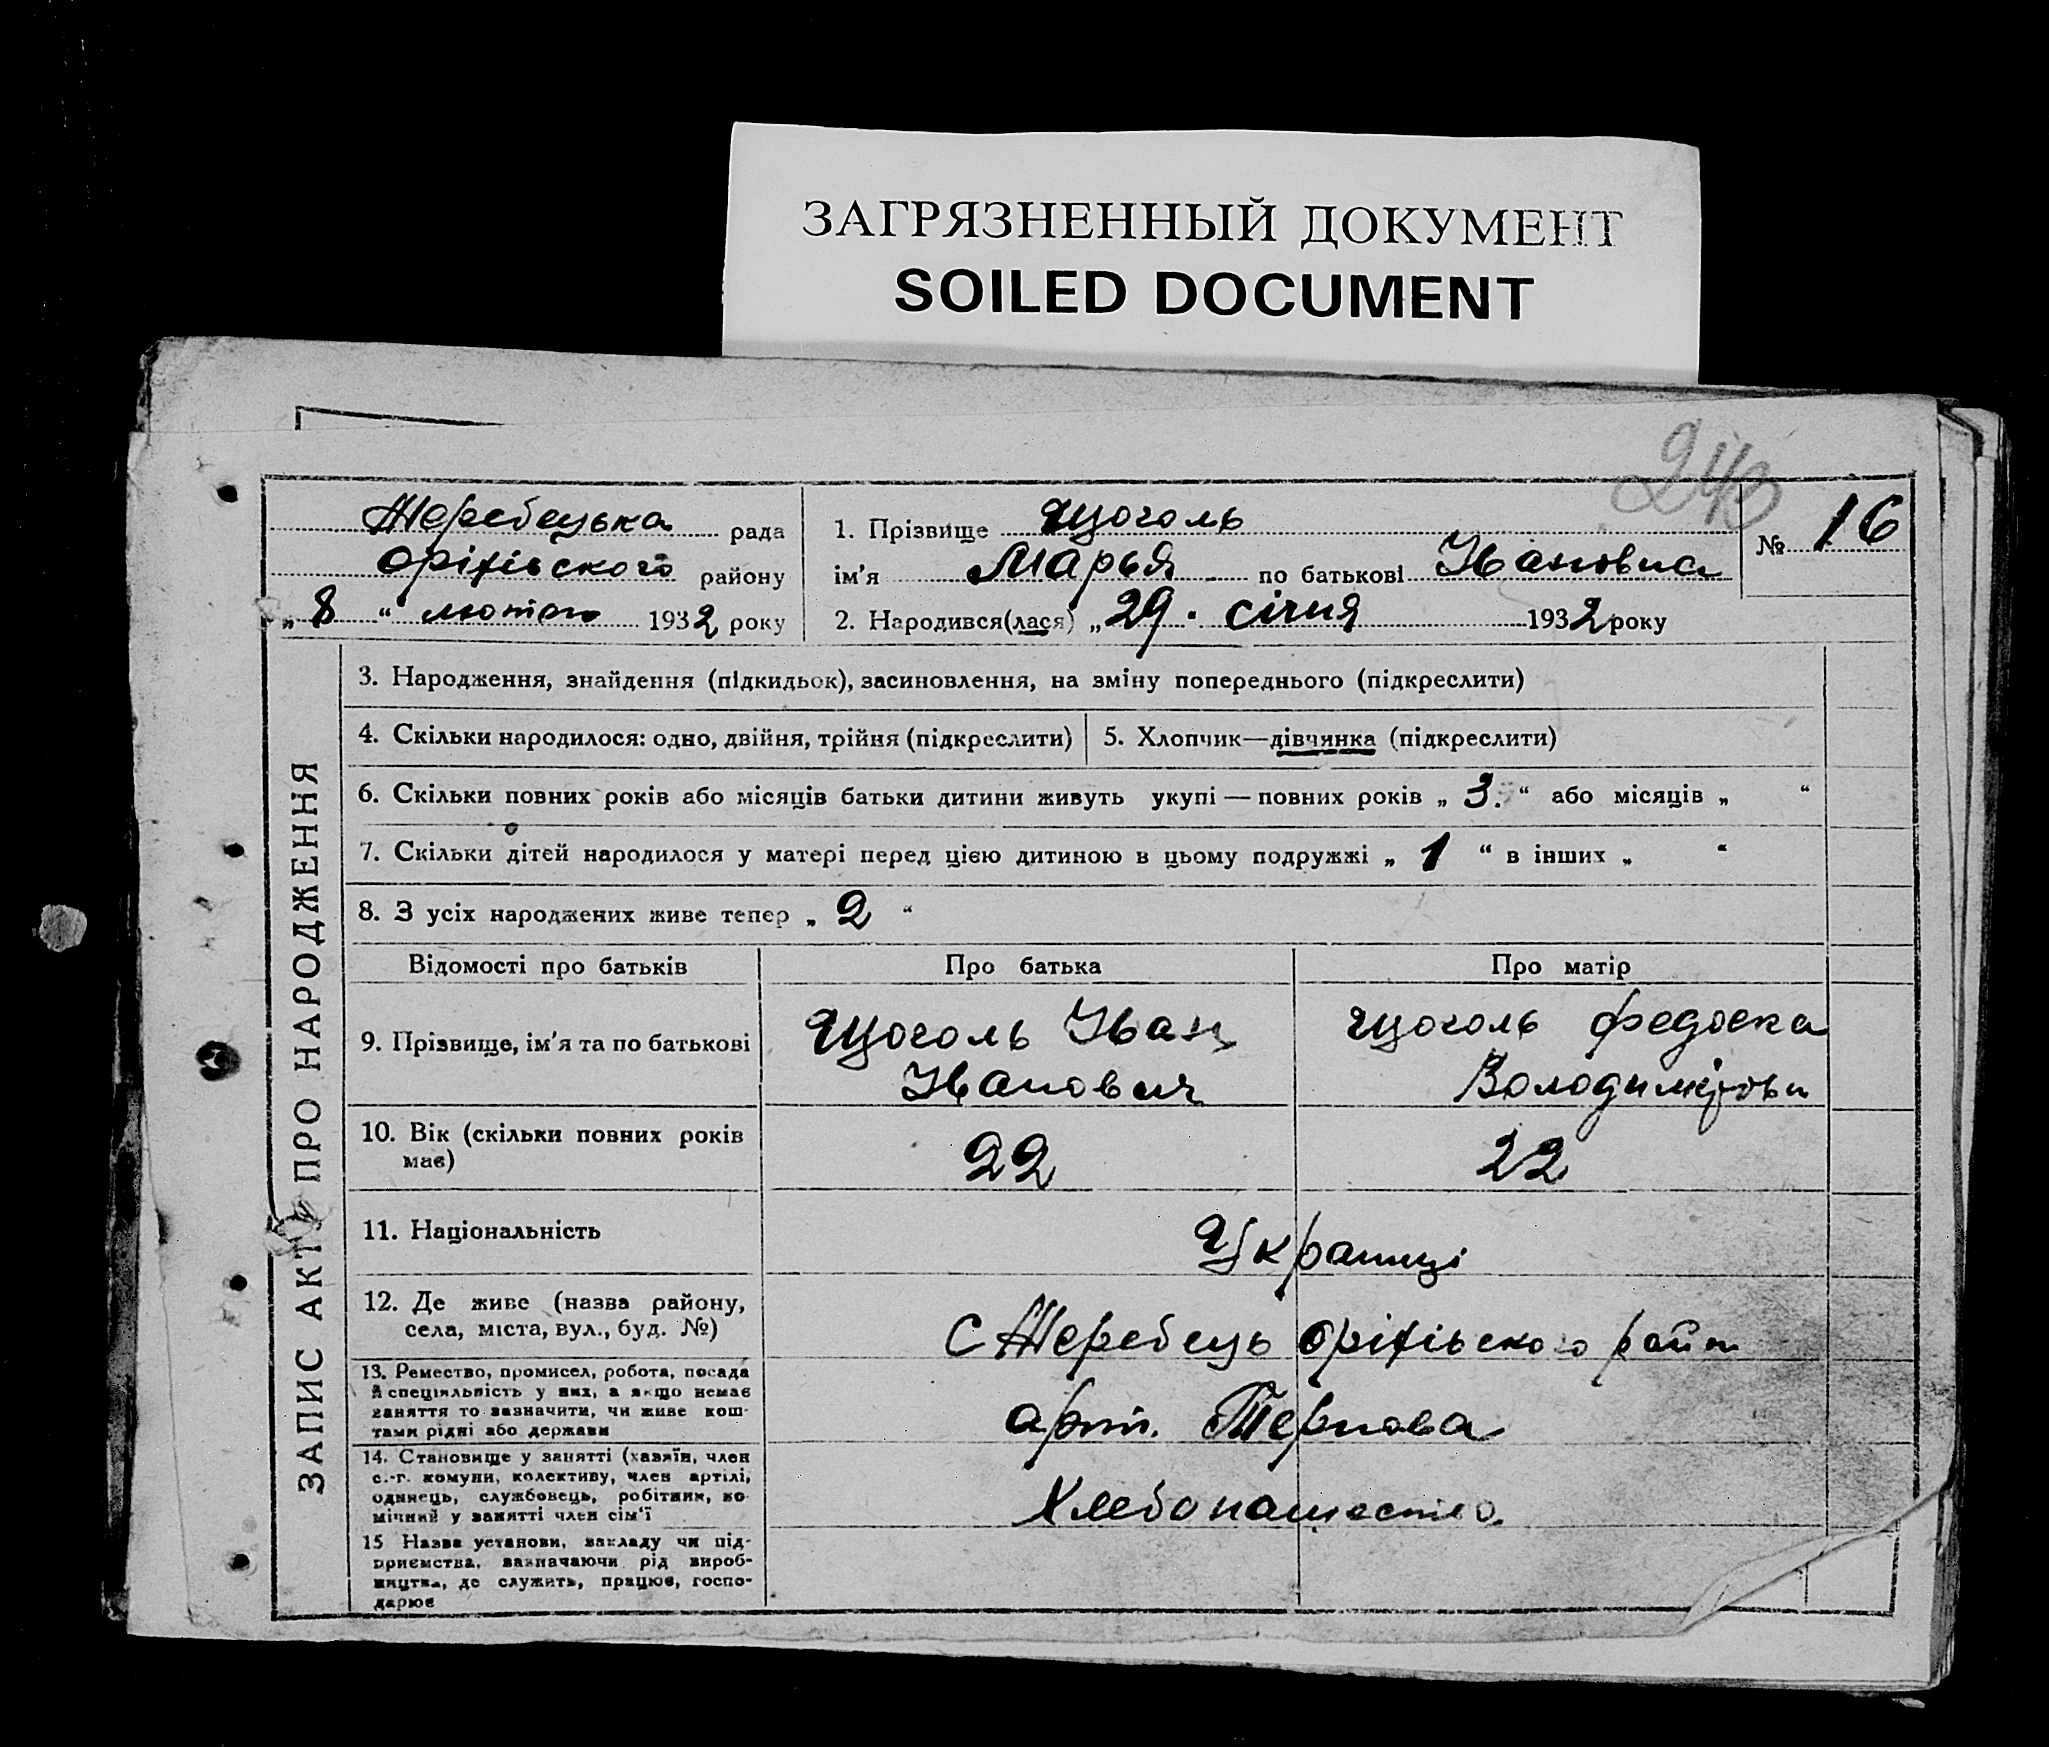 ЗАГРЯЗНЕННЫЙ ДОКУМЕНТ
SOILED DOCUMENT
243
Жеребецька рада
Оріхівського району
„ 8 “ лютого 1932 року
1. Прізвище Щоголь
ім'я Марья по батькові Івановна
2. Народився(лася) „ 29. січня 1932 року
№ 16
ЗАПИС АКТУ ПРО НАРОДЖЕННЯ
3. Народження, знайдення (підкидьок), засиновлення, на зміну попереднього (підкреслити)
4. Скільки народилося: одно, двійня, трійня (підкреслити)
5. Хлопчик—дівчинка (підкреслити)
6. Скільки повних років або місяців батьки дитини живуть укупі — повних років „ 3. “ або місяців „ “
7. Скільки дітей народилося у матері перед цією дитиною в цьому подружжі „ 1 “ в інших „ “
8. З усіх народжених живе тепер „ 2 “
Відомості про батьків Про батька Про матір
9. Прізвище, ім'я та по батькові
Щоголь Іван
Іванович
Щоголь Федоска
10. Вік (скільки повних років
має)
22 22
11. Національність
Українці
12. Де живе (назва району,
села, міста, вул., буд. №)
С Жеребець Оріхівського район
13. Ремество, промисел, робота, посада
й спеціяльність у них, а якщо немає
заняття то зазначити, чи живе кош-
тами рідні або держави
арт. Тернова
14. Становище у занятті (хазяїн, член
с.-г. комуни, колективу, член артілі,
одинець, службовець, робітник, по
мічний у занятті член сім'ї
Хлебопашество
15 Назва установи, закладу чи під-
приємства, зазначаючи рід вироб-
ництва, де служить, працює, госпо-
дарює